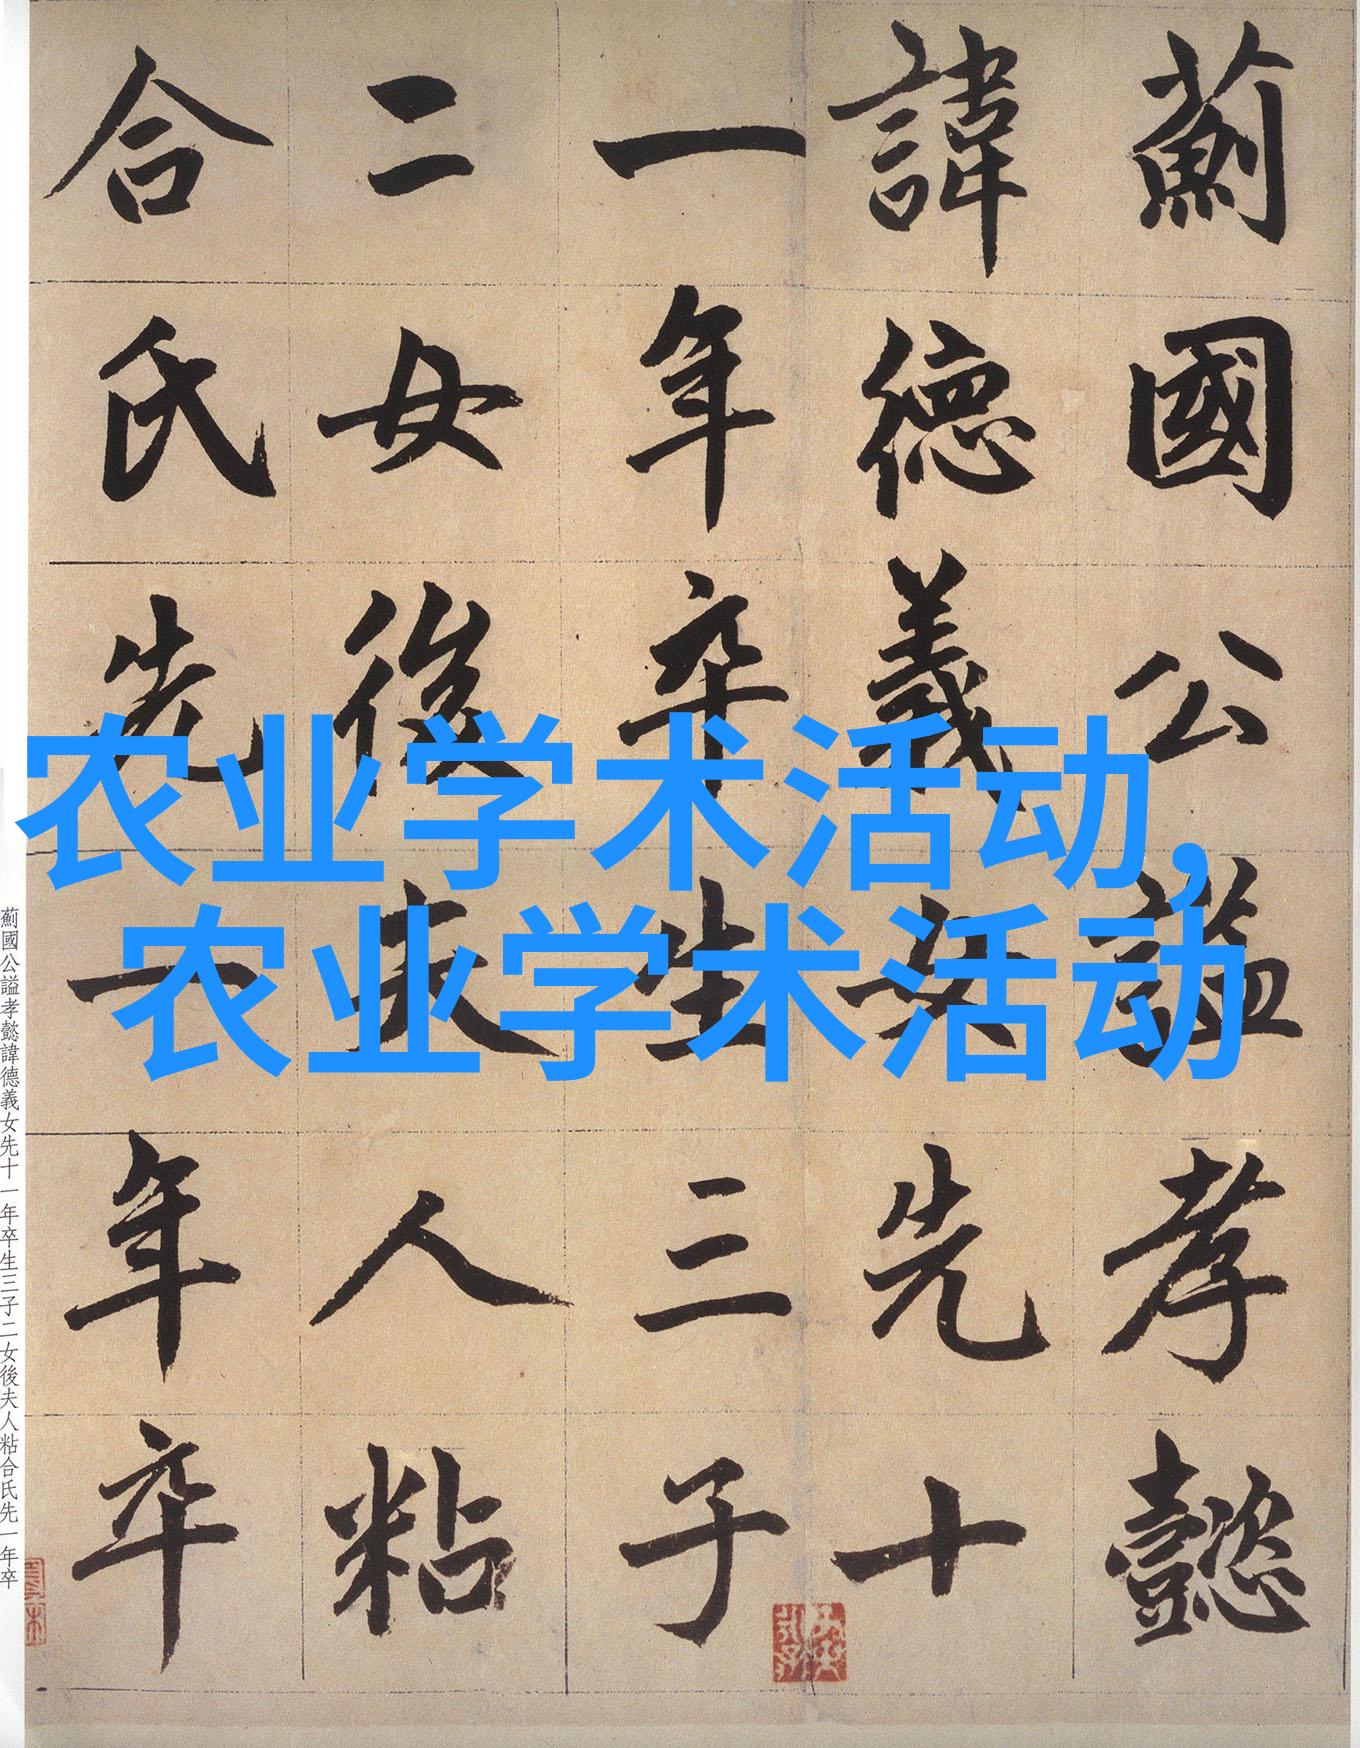 薊國公謚孝懿
諱德義女先十
一年卒生三子
二女後夫人粘
合氏先一年卒
农业学术活动,
农业学术活动
薊國公謚孝懿諱德義女先十一年卒生三子二女後夫人粘合氏先一年卒